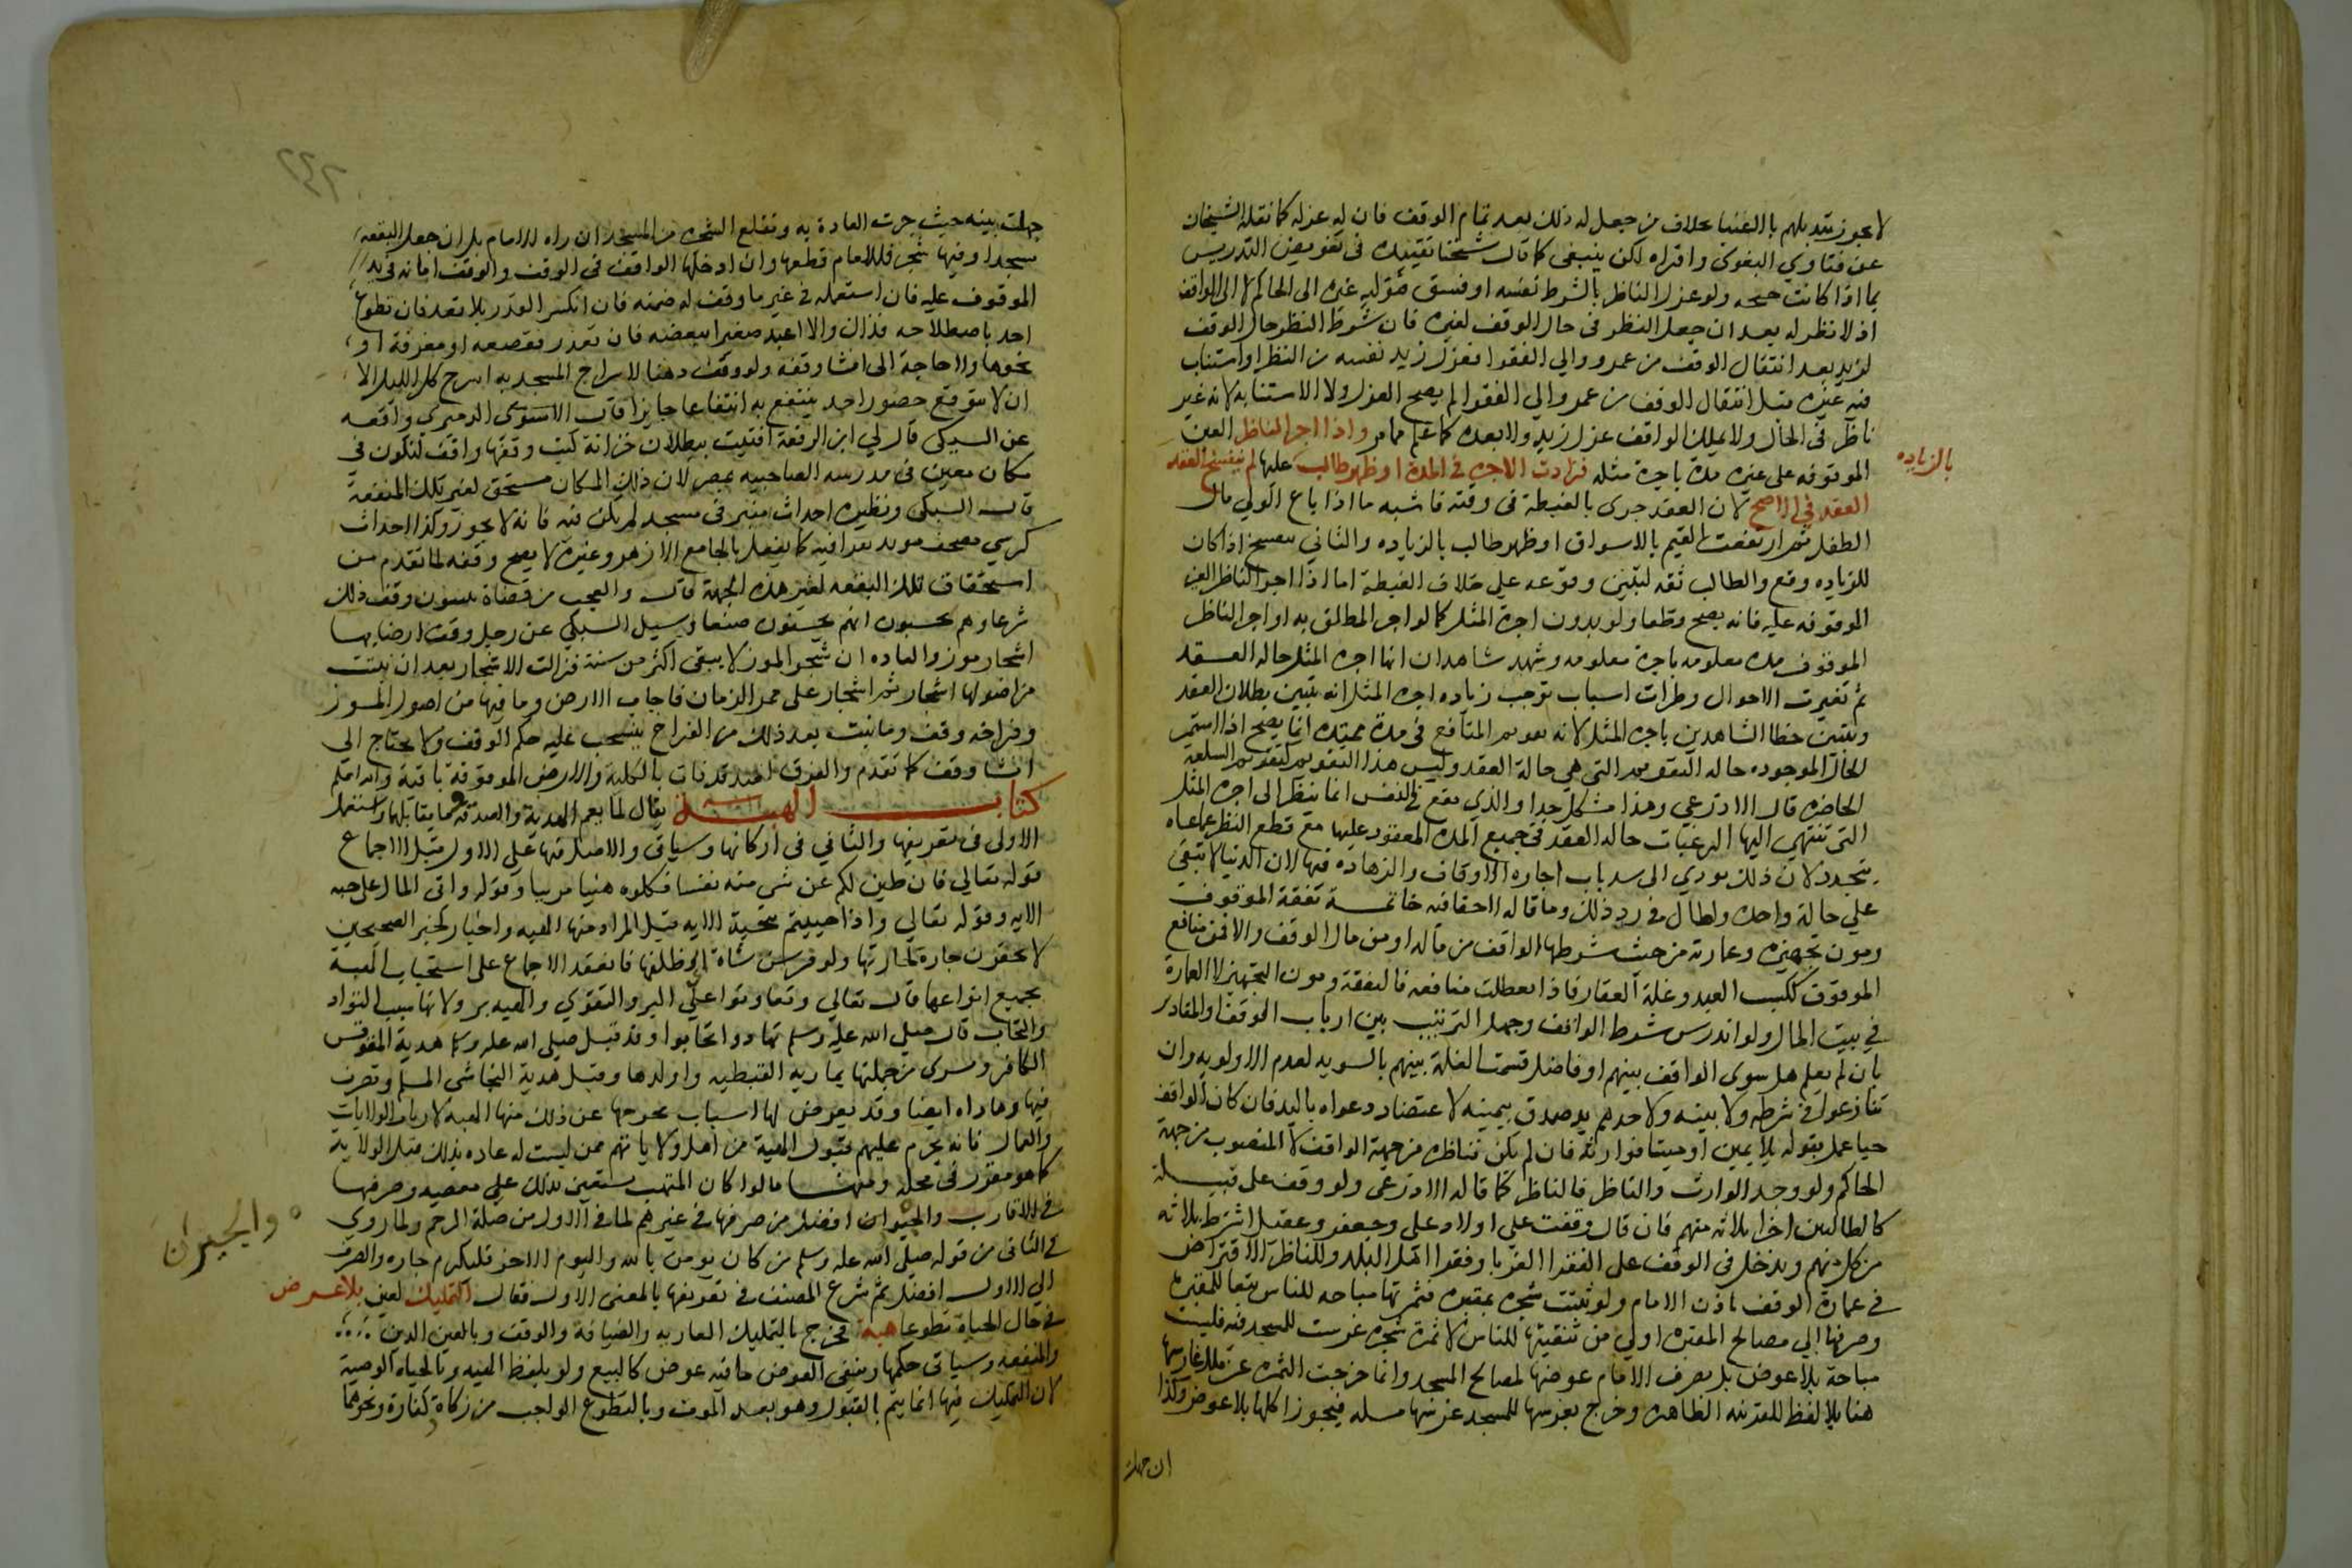 لا يجوز تبديلهم بالاغنيا بخلاف من جعل له ذلك بعد تمام الوقف فان له عزله كما نقله الشيخان
عن فتاوي البغوي واقراه لكن ينبغي كما قال شيخنا تقييده في تفويض التدريس
بما اذا كانت جنحه ولو عزل الناظر بالشرط نفسه او فسق فتوليه غيره الى الحاكم لا الى الواقف
اذ لا نظر له بعد ان جعل النظر في حال الوقف لغيره فان شرط النظر حال الوقف
لزيد بعد انتقال الوقف من عمرو والي الفقرا فعزل زيد نفسه من النظر او استناب
فيه غيره قبل انتقال الوقف من عمرو الي الفقرا لم يصح العزل ولا الاستنابه لانه غير
ناظر في الحال ولا يملك الواقف عزل زيد ولا بعده كما علم مما مر واذا اجر الناظر العين
الموقوفه على غيره مدة باجرة مثله فزادت الاجره في المدة او ظهر طالب عليها لم ينفسخ العقد
بالزياده
العقد في الاصح لان العقد جرى بالغبطة في وقته فاشبه ما اذا باع الولي مال
الطفل ثم ارتفعت القيم بالاسواق او ظهر طالب بالزياده والثاني ينفسخ اذا كان
للزياده وقع والطالب ثقه لتبين وقوعه علي خلاف الغبطة اما اذا اجر الناظر العين
الموقوفه عليه فانه يصح قطعا ولو بدون اجرة المثل كما لو اجر المطلق به او اجر الناظر
الموقوف مده معلومه باجرة معلومه وشهد شاهدان انها اجرة المثل حاله العقد
ثم تغيرت الاحوال وطرات اسباب توجب زياده اجره المثل انه يتبين بطلان العقد
وتبين خطا الشاهدين باجرة المثل لانه تقويم المنافع في مدة ممتده انما يصح اذا استمر
الحال الموجوده حاله التقويم التي هي حالة العقد وليس هذا التقويم كتقويم السلعه
الحاضره قال الاذرعي وهذا مشكل جدا والذي يقع في النفس انما ينظر الى اجره المثل
التي تنتهي اليها الرغبات حاله العقد في جميع المدة المعقود عليها مع قطع النظر عما عساه
يتجدد لان ذلك يودي الى سد باب اجاره الاوقاف والزهاده فيها لان الدنيا لا تبقي
علي حالة واحده واطال في رد ذلك وما قاله لا خفا فيه خاتمة نفقة الموقوف
ومون تجهيزه وعمارته من حيث شرطها الواقف من ماله او من مال الوقف والا فمن منافع
الموقوف ككسب العبد وغلة العقار فاذا تعطلت منافعه فالنفقة ومون التجهيز لا العمارة
في بيت المال ولو اندرس شرط الواقف وجهل الترتيب بين ارباب الوقف او المقادير
بان لم يعلم هل سوى الواقف بينهم او فاضل قسمت الغلة بينهم بالسويه لعدم الاولويه وان
تنازعوا في شرطه ولا بينه ولاحدهم يد صدق بيمينه لاعتضاد دعواه باليد فان كان الواقف
حيا عمل بقوله بلا يمين او ميتا فوارثه فان لم يكن فناظره من جهة الواقف لا المنصوب من جهة
الحاكم ولو وجد الوارث والناظر فالناظر كما قاله الاذرعي ولو وقف على قبيلة
كالطالبين اجزا ثلاثه منهم فان قال وقفت علي اولاد علي وجعفر وعقيل اشترط ثلاثه
من كل منهم ويدخل في الوقف على الفقرا الغربا وفقرا اهل البلد وللناظر الاقتراض
في عمارة الوقف باذن الامام ولو نبتت شجره بمقبره فثمرتها مباحه للناس تبعا للمقبره
وصرفها الي مصالح المقبره اولي من تبقيتها للناس لا ثمرة شجرة غرست للمسجد فيه فليست
مباحة بلا عوض بل يصرف الامام عوضها لمصالح المسجد وانما خرجت الثمره عن ملك غارسها
هنا بلا لفظ للقرينه الظاهره وخرج بغرسها للمسجد غرسها مسبله فيجوز اكلها بلا عوض وكذا
ان جهلت
جهلت بينه حيث جرت العادة به وتقلع الشجره من المسجد ان راه الامام بل ان جعل البقعه
مسجدا وفيها شجر فللامام قطعها وان ادخلها الواقف في الوقف والوقف امانه في يد
الموقوف عليه فان استعمله في غير ما وقف له ضمنه فان انكسر القدر بلا تعد فان تطوع
احد باصطلاحه فذاك والا اعيد صغيرا ببعضه فان تعذر فقصعه او مغرفة او
نحوها ولا حاجة الى انشا وقفه ولو وقف دهنا لاسراج المسجد به اسرج كل الليل الا
ان لا يتوقع حضور احد ينتفع به انتفاعا جايزا قال الاسنوي الدميري واقعه
عن السبكي قال لي ابن الرفعة افتيت ببطلان خزانة كتب وقفها واقف لتكون في
مكان معين في مدرسه الصاحبيه بمصر لان ذلك المكان مستحق لغير تلك المنفعة
قال السبكي ونظيره احداث منبر في مسجد لم يكن فيه فانه لا يجوز وكذا احداث
كرسي مصحف موبد يقرا فيه كما يفعل بالجامع الازهر وغيره لا يصح وقفه لما تقدم من
استحقاق تلك البقعه لغير هذه الجهة قال والعجب من قضاة يثبتون وقف ذلك
شرعا وهم يحسبون انهم يحسنون صنعا وسيل السبكي عن رجل وقف ارضا بها
اشجار موز والعاده ان شجر الموز لا يبقى اكثر من سنة فزالت الاشجار بعد ان نبتت
من اصولها اشجار ثم اشجار على ممر الزمان فاجاب الارض وما فيها من اصول الموز
وفراخه وقف وما نبت بعد ذلك من الفراخ ينسحب عليه حكم الوقف ولا يحتاج الى
انشا وقف كما تقدم والفرق العبد قد فات بالكلية والارض الموقوفة باقية والله اعلم
كتاب الهبة يقال لما يعم الهدية والصدقة ولما يقابلها واستعمل
الاولى في تعريفها والثاني في اركانها وسياتي والاصل فيها علي الاول قبل الاجماع
قوله تعالي فان طبن لكم عن شي منه نفسا فكلوه هنيا مريا وقوله واتى المال على حبه
الايه وقوله تعالي واذا حييتم بتحية الايه قيل المراد منها الهبه واخبار كخبر الصحيحين
لا تحقرن جارة لجارتها ولو فرسن شاة اي ظلفها فانعقد الاجماع على استحباب الهبة
بجميع انواعها قال تعالي وتعاونوا علي البر والتقوي والهبه بر ولانها سبب التواد
والتحاب قال صلي الله عليه وسلم تهادوا تحابوا وقد قبل صلى الله عليه وسلم هدية المقوقس
الكافر وتسرى من جملتها بمارية القبطيه واولدها وقبل هدية النجاشي المسلم وتصرف
فيها وهاداه ايضا وقد يعرض لها اسباب تخرجها عن ذلك منها الهبة لارباب الولايات
والعمال فانه يحرم عليهم قبول الهبة من اهل ولاياتهم ممن ليست له عاده بذلك قبل الولاية
كما هو مقرر في محله ومنها ما لو كان المتهب يستعين بذلك علي معصيه وصرفها
في الاقارب والجيران افضل من صرفها في غيرهم لما في الاول من صلة الرحم ولما روي
والجيران
في الثاني من قوله صلي الله عليه وسلم من كان يومن بالله واليوم الاخر فليكرم جاره والصرف
الى الاول افضل ثم شرع المصنف في تعريفها بالمعنى الاول فقال التمليك لعين بلا عوض
في حال الحياة تطوعا هبة فخرج بالتمليك العاريه والضيافة والوقف وبالعين الدين
والمنفعه وسياتي حكمها وبنفي العوض ما فيه عوض كالبيع ولو بلفظ الهبه وبالحياه الوصية
لان التمليك فيها انما يتم بالقبول وهو بعد الموت وبالتطوع الواجب من زكاة كفارة ونحوهما